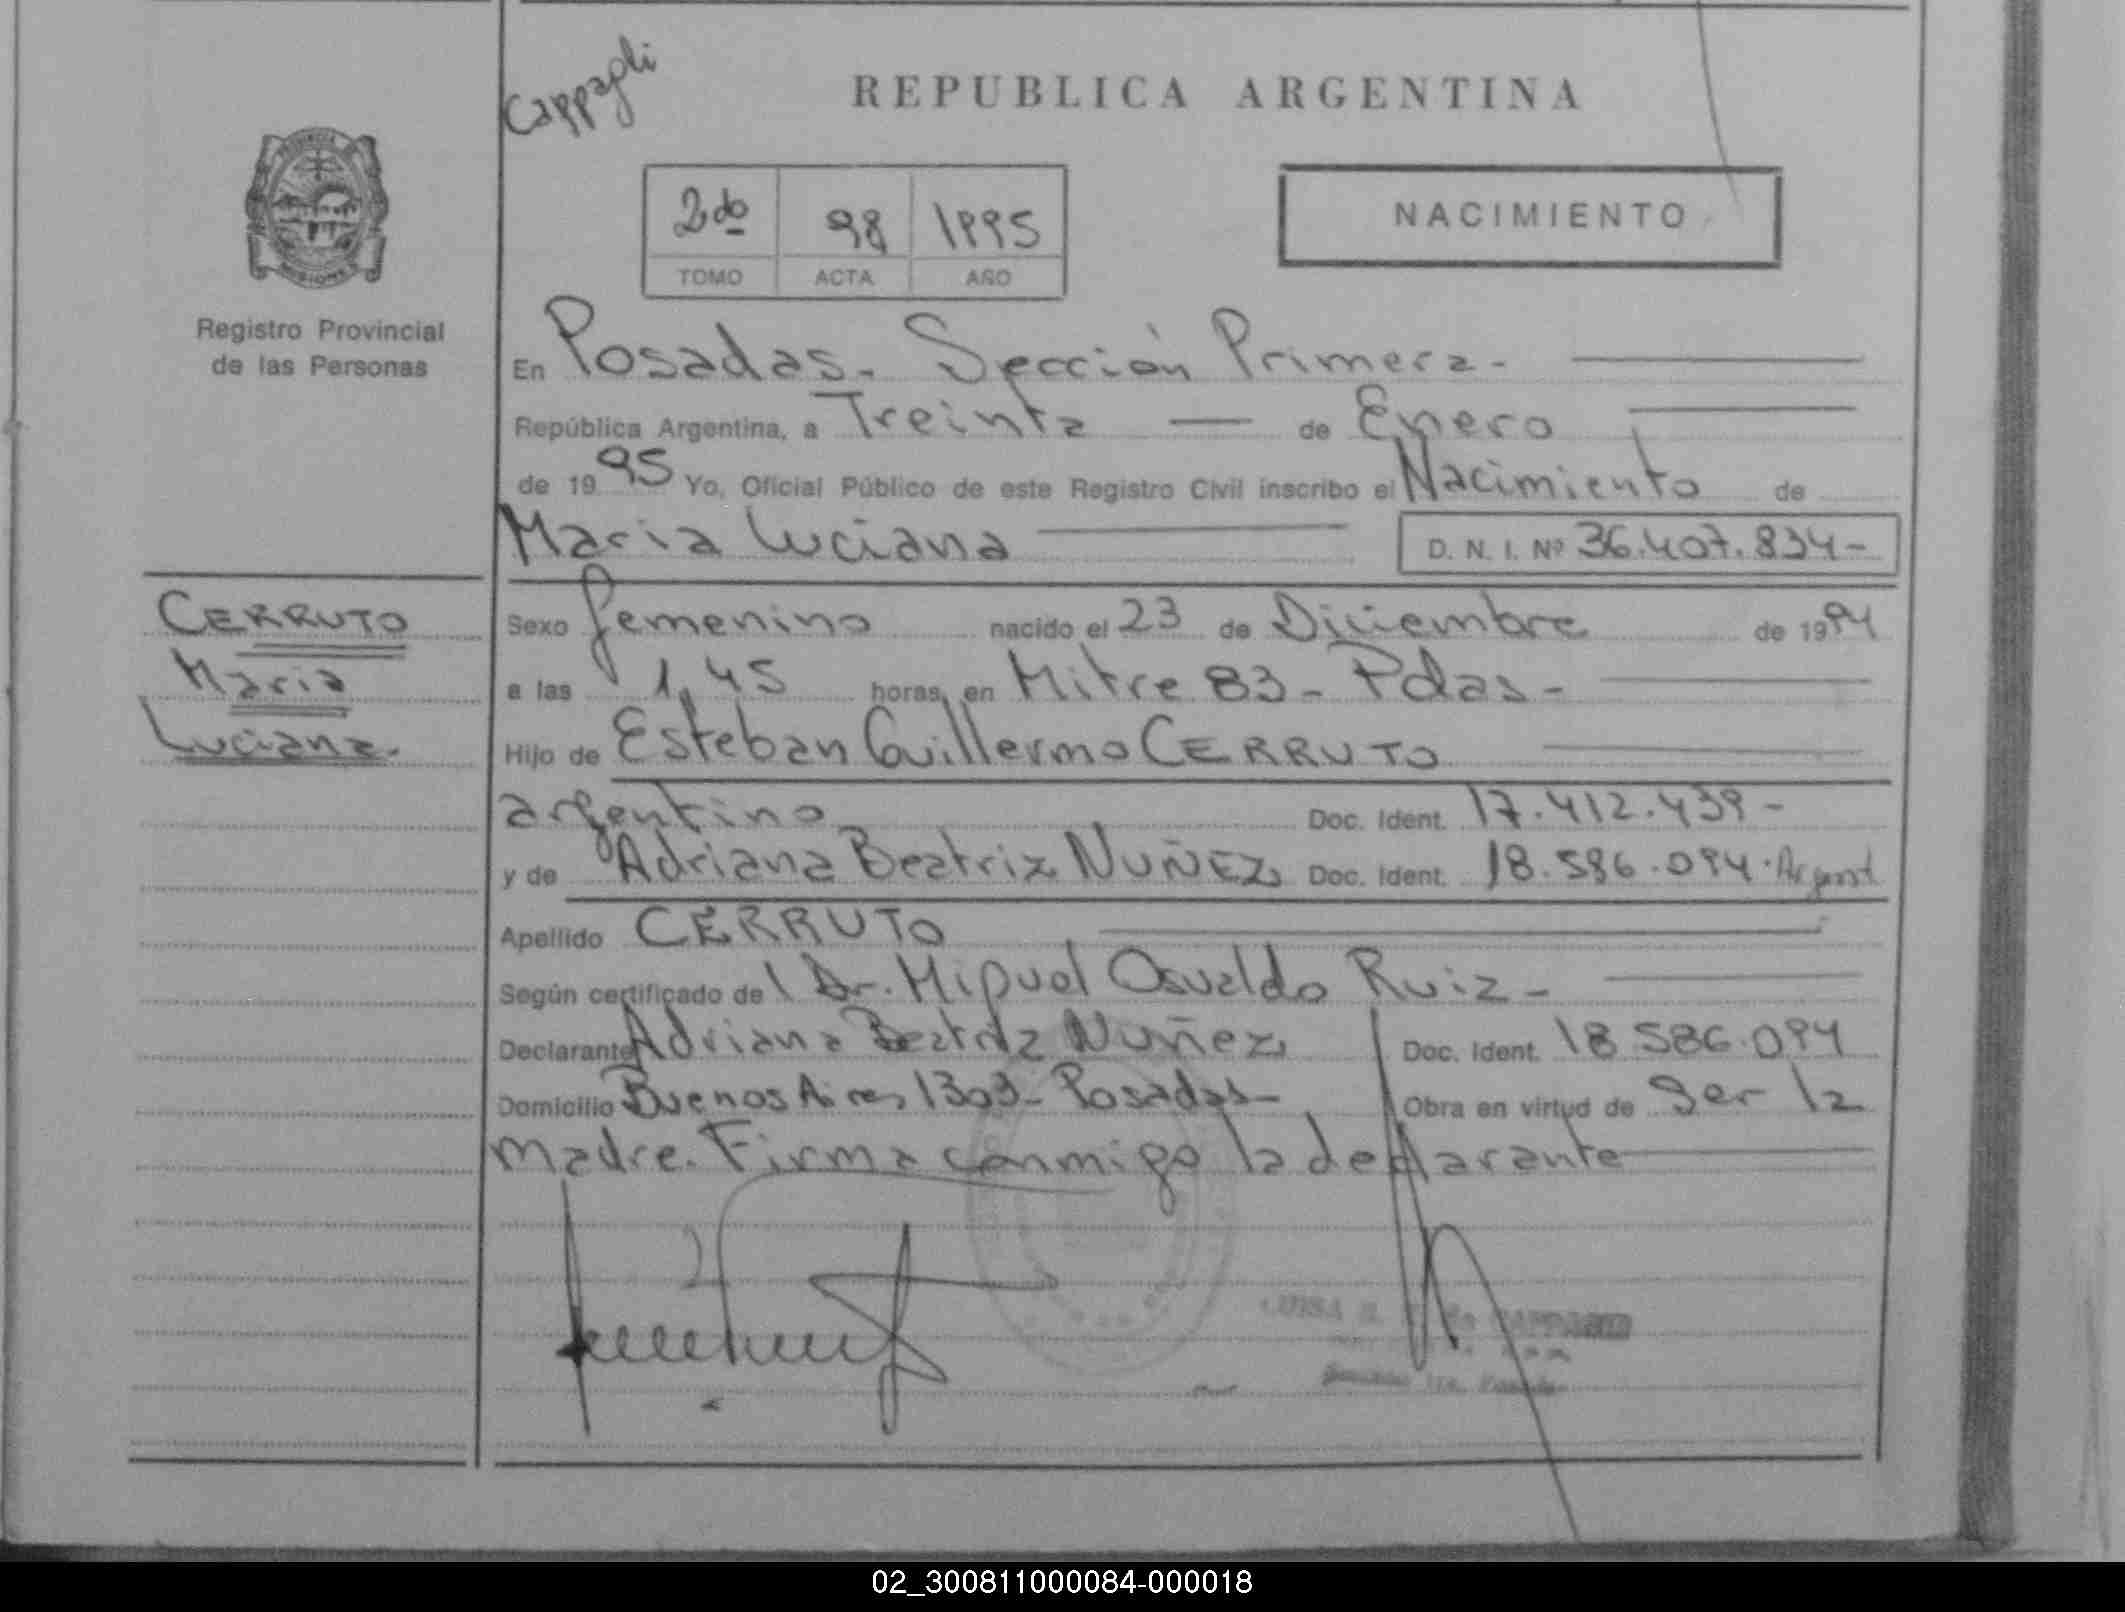 Cappagli
REPUBLICA ARGENTINA
2do 98 1995
TOMO ACTA AÑO
NACIMIENTO
Registro Provincial
de las Personas
En Posadas. Sección Primera-
República Argentina, a Treinta — de Enero
de 1995 Yo, Oficial Público de este Registro Civil inscribo el Nacimiento de
Maria Luciana D. N. I. Nº 36.407.834-
CERRUTO
Maria
Luciana.
Sexo femenino nacido el 23 de Diciembre de 1994
a las 1,45 horas, en Mitre 83- Pdas-
Hijo de Esteban Guillermo CERRUTO
argentino Doc. Ident. 17.412.439-
y de Adriana Beatriz NUÑEZ Doc. Ident. 18.586.094. Argent
Apellido CERRUTO
Según certificado del Dr. Miguel Osvaldo Ruiz-
Declarante Adriana Beatriz Nuñez Doc. Ident. 18 586.094
Domicilio Buenos Aires 1303- Posadas- Obra en virtud de Ser la
madre. Firma conmigo la declarante
02_300811000084-000018